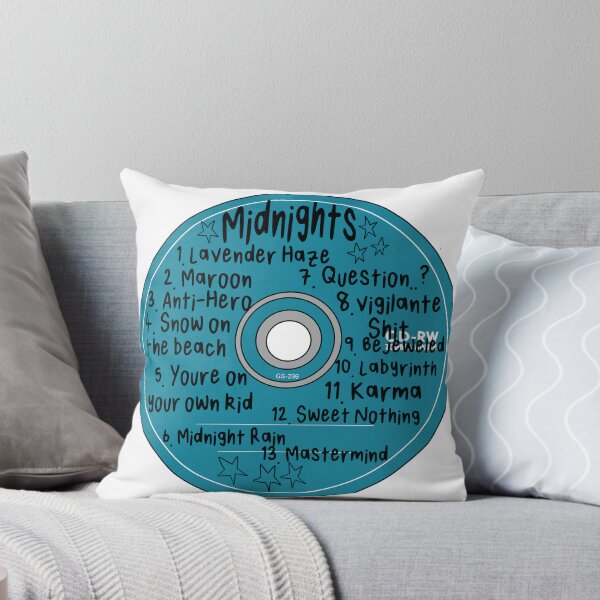 Midnights
1. Lavender Haze
2. Maroon
3. Anti-Hero
4. Snow on
the beach
5. Youre on
your own kid
6. Midnight Rain
7. Question..?
8. Vigilante
Shit
9. Bejeweled
10. Labyrinth
11. Karma
12. Sweet Nothing
13. Mastermind
CD-RW
GS-239